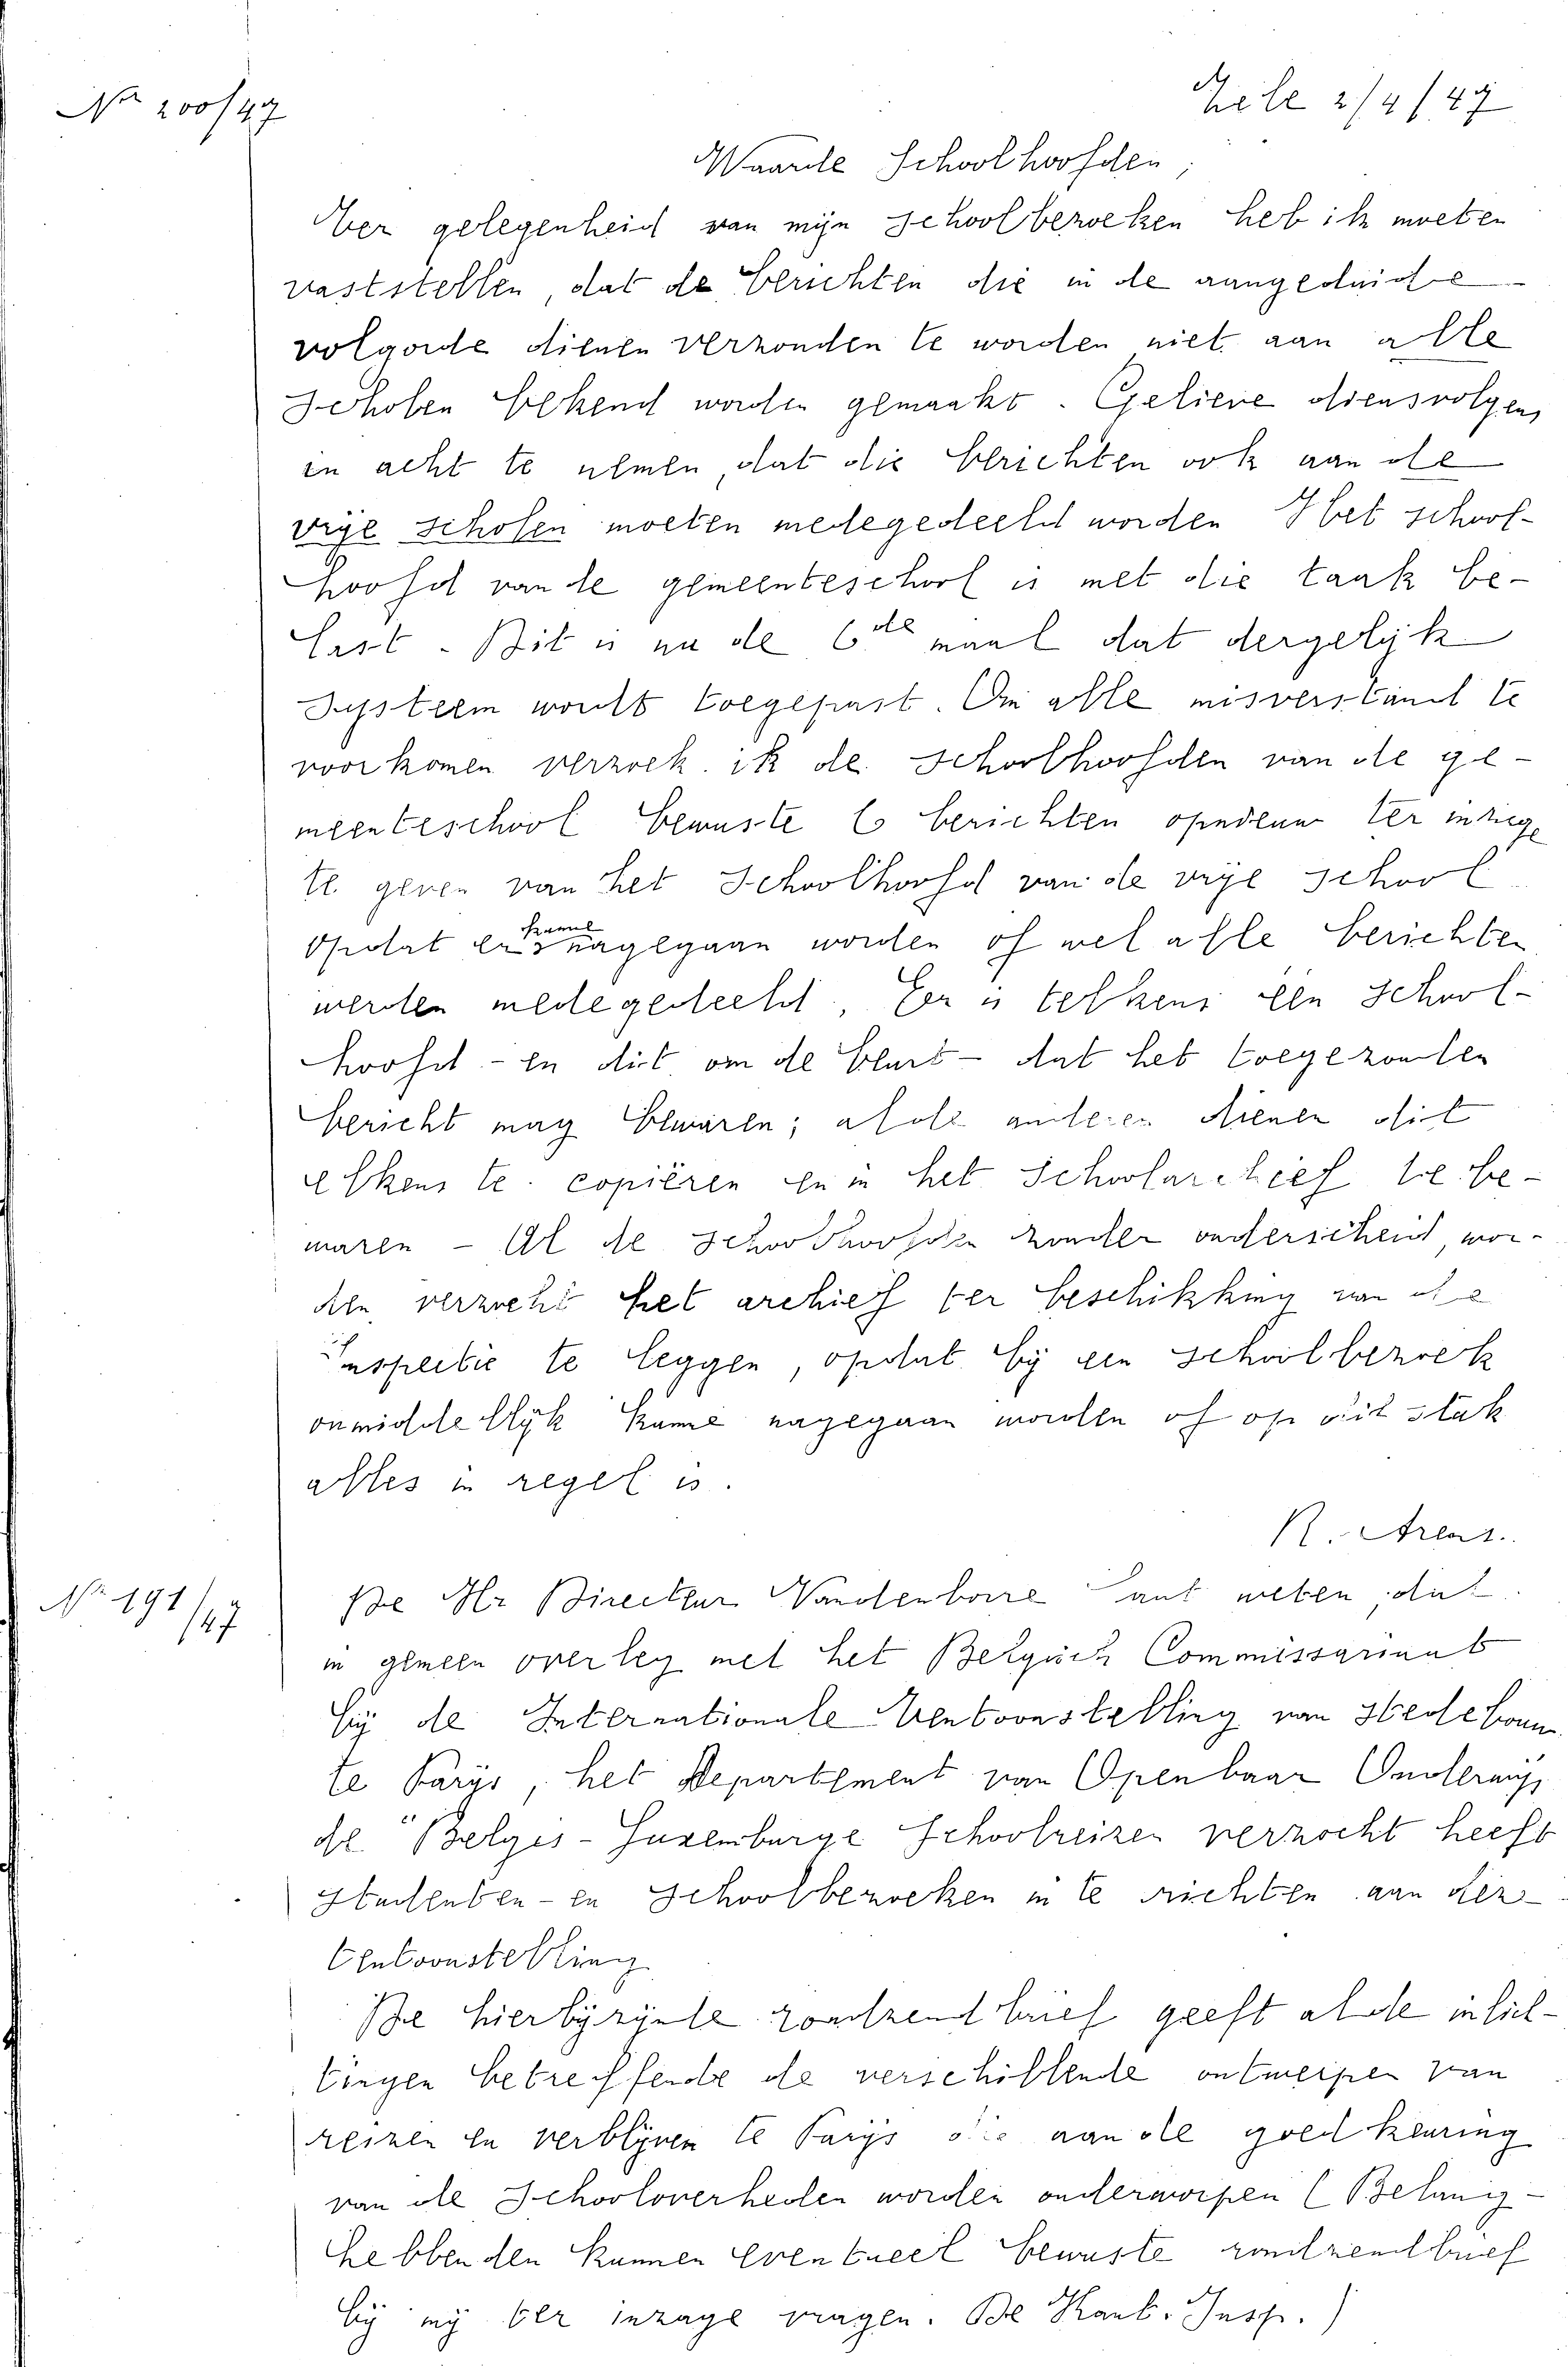 No 200/47
Zele 2/4/47
Waarde Schoolhoofden,
Ter gelegenheid van mijn schoolbezoeken heb ik moeten
vaststellen, dat de berichten die in de aangeduide
volgorde dienen verzonden te worden niet aan alle
Scholen bekend worden gemaakt. Gelieve diensvolgens
in acht te nemen, dat die berichten ook aan de
vrije scholen moeten medegedeeld worden Het school-
hoofd van de gemeenteschool is met die taak be-
last. Dit is nu de 6de maal dat dergelijk
Systeem wordt toegepast. Om alle misverstand te
voorkomen verzoek ik de Schoolhoofden van de ge-
meenteschool bewuste 6 berichten opnieuw ter inzage
te geven van het Schoolhoofd van de vrije school
Opdat er kunne nagegaan worden of wel alle berichten
werden medegedeeld, Er is telkens één School-
hoofd - en dit om de beurt - dat het toegezonden
bericht mag bewaren; al de anderen dienen dit
telkens te copiëren en in het Schoolarchief te be-
waren - Al de Schoolhoofden zonder onderscheid, wor-
den verzocht het archief ter beschikking van de
Inspectie te leggen, opdat bij een Schoolbezoek
onmiddellijk kunne nagegaan worden of op dit stuk
alles in regel is.
R. Arens.
No 191/47
De Hr Directeur Vandenborre laat weten, dat
in gemeen overleg met het Belgisch Commissariaat
bij de Internationale Tentoonstelling van Stedebouw
te Parijs, het Departement van Openbaar Onderwijs,
de "Belgis-Luxemburge Schoolreizen verzocht heeft
Studenten - en Schoolbezoeken in te richten aan deze
Tentoonstelling
De hierbijzijnde rondzendbrief geeft al de inlich-
tingen betreffende de verschillende ontwerpen van
reizen en verblijven te Parijs die aan de goedkeuring
van de Schooloverheden worden onderworpen (Belang-
hebbenden kunnen eventueel bewuste rondzendbrief
bij mij ter inzage vragen. De Kant. Insp.)